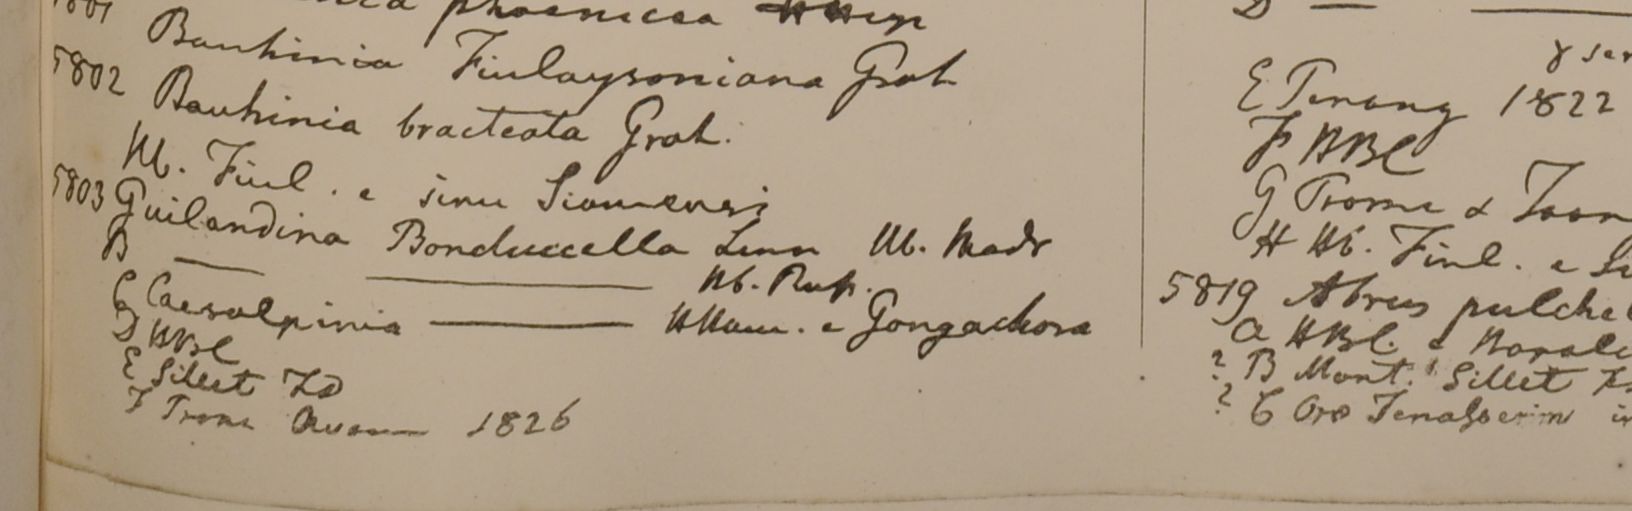 5801
phoenicea HHeyn
Bauhinia Finlaysoniana Grah
5802 Bauhinia bracteata Grah.
Hb. Finl. e sinu Siamensi
5803 Guilandina Bonduccella Linn Hb. Madr
B — — Hb. Russ.
C Caesalpinia — HHam. e Gongachora
D HBC
E Sillet FD
F Prome 1826
D — —
E Penang 1822
F HBC
G Prome &
H Hb. Finl. e
5819 Abrus pulchel
a HBC. e
? B Mont. Sillet
? C Ora Tenasserim